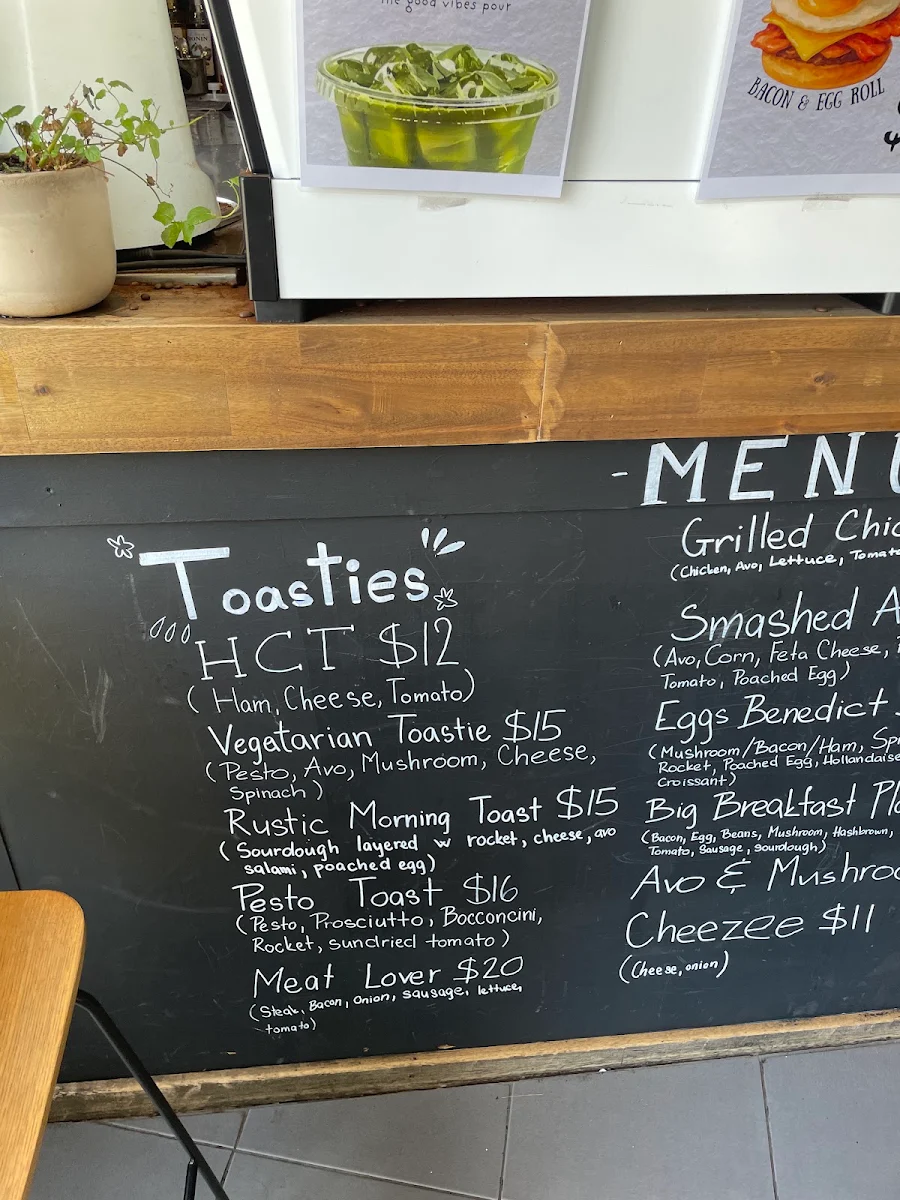 the good vibes pour
BACON & EGG ROLL
Toasties
HCT $12
(Ham, Cheese, Tomato)
Vegetarian Toastie $15
(Pesto, Avo, Mushroom, Cheese,
Spinach)
Rustic Morning Toast $15
(Sourdough layered w rocket, cheese, avo
salami, poached egg)
Pesto Toast $16
(Pesto, Prosciutto, Bocconcini,
Rocket, sundried tomato)
Meat Lover $20
(Steak, Bacon, Onion, sausage, lettuce,
tomato)
- MENU
Grilled Chic
(Chicken, Avo, Lettuce, Tomato
Smashed A
(Avo, Corn, Feta Cheese,
Tomato, Poached Egg)
Eggs Benedict
(Mushroom/Bacon/Ham, Sp
Rocket, Poached Egg, Hollandaise
Croissant)
Big Breakfast Pla
(Bacon, Egg, Beans, Mushroom, Hashbrown,
Tomato, Sausage, sourdough)
Avo & Mushroo
Cheezee $11
(Cheese, onion)